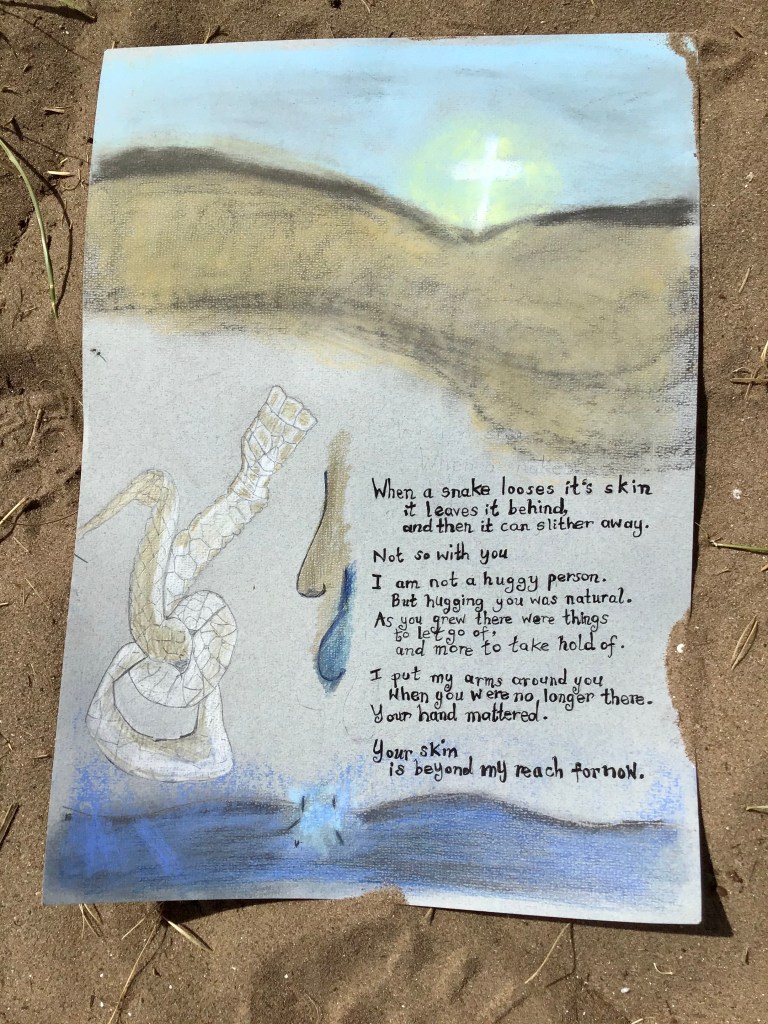 When a snake looses it's skin
it leaves it behind,
and then it can slither away.
Not so with you
I am not a huggy person.
But hugging you was natural.
As you grew there were things
to let go of,
and more to take hold of.
I put my arms around you
when you were no longer there.
Your hand mattered.
Your skin
is beyond my reach for now.